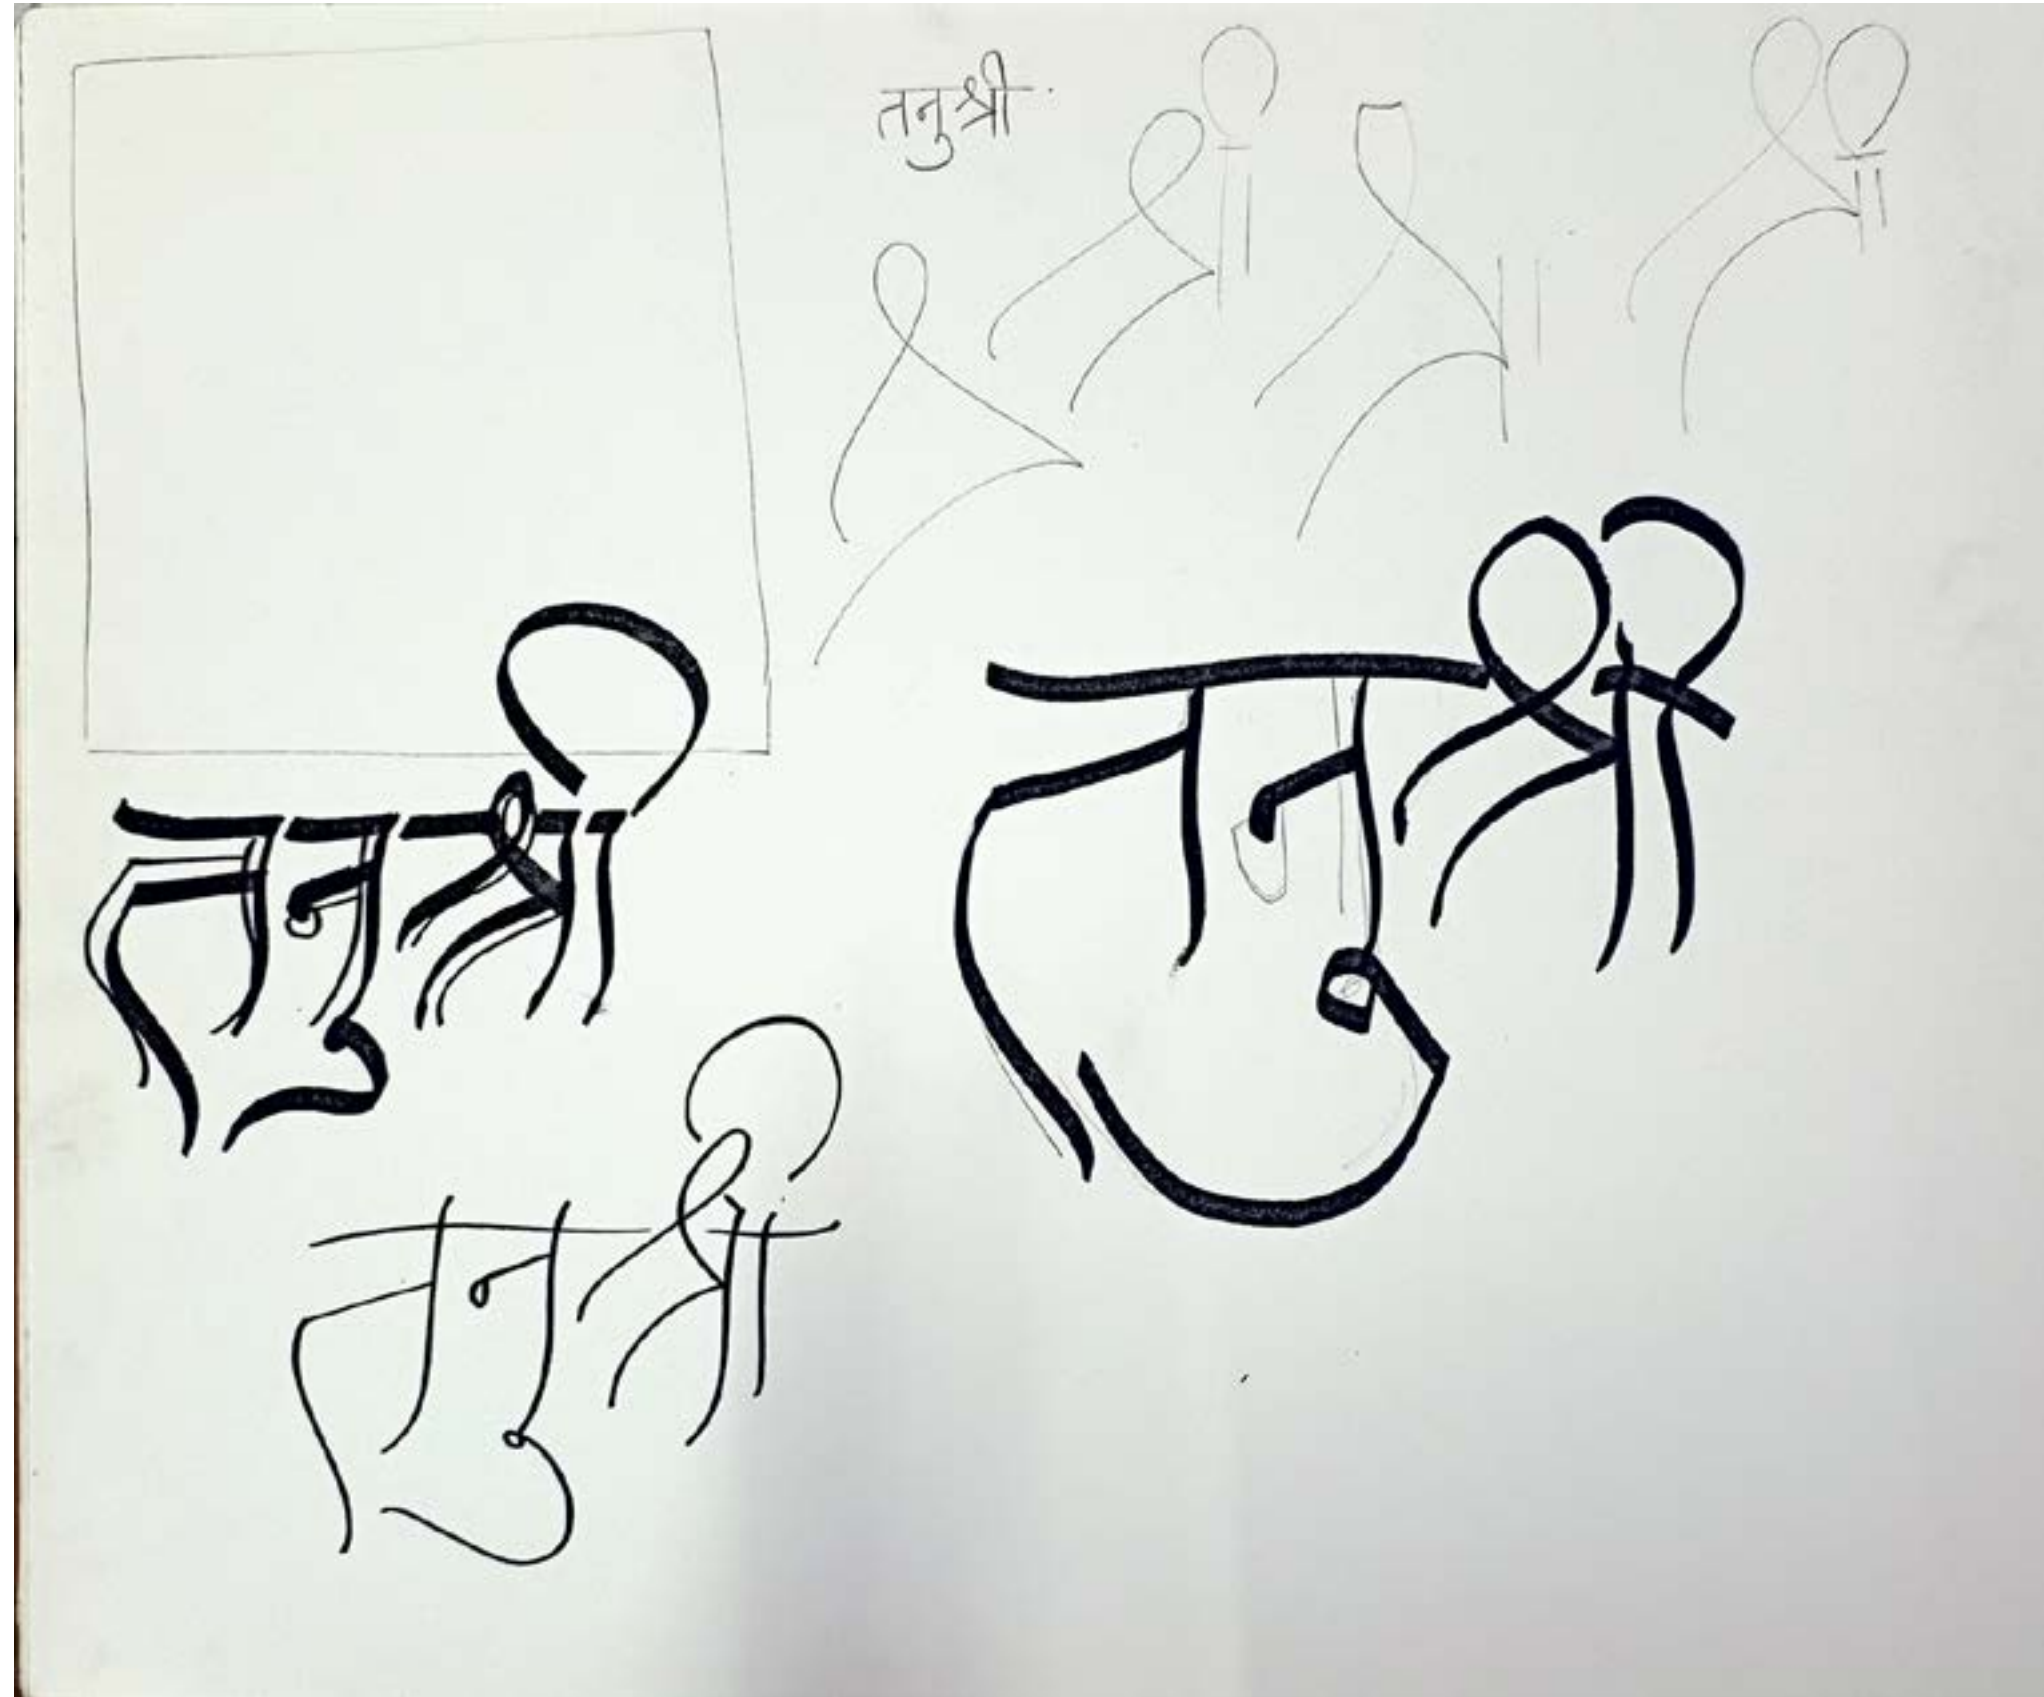 तनुश्री
तनुश्री
तनुश्री
तनुश्री